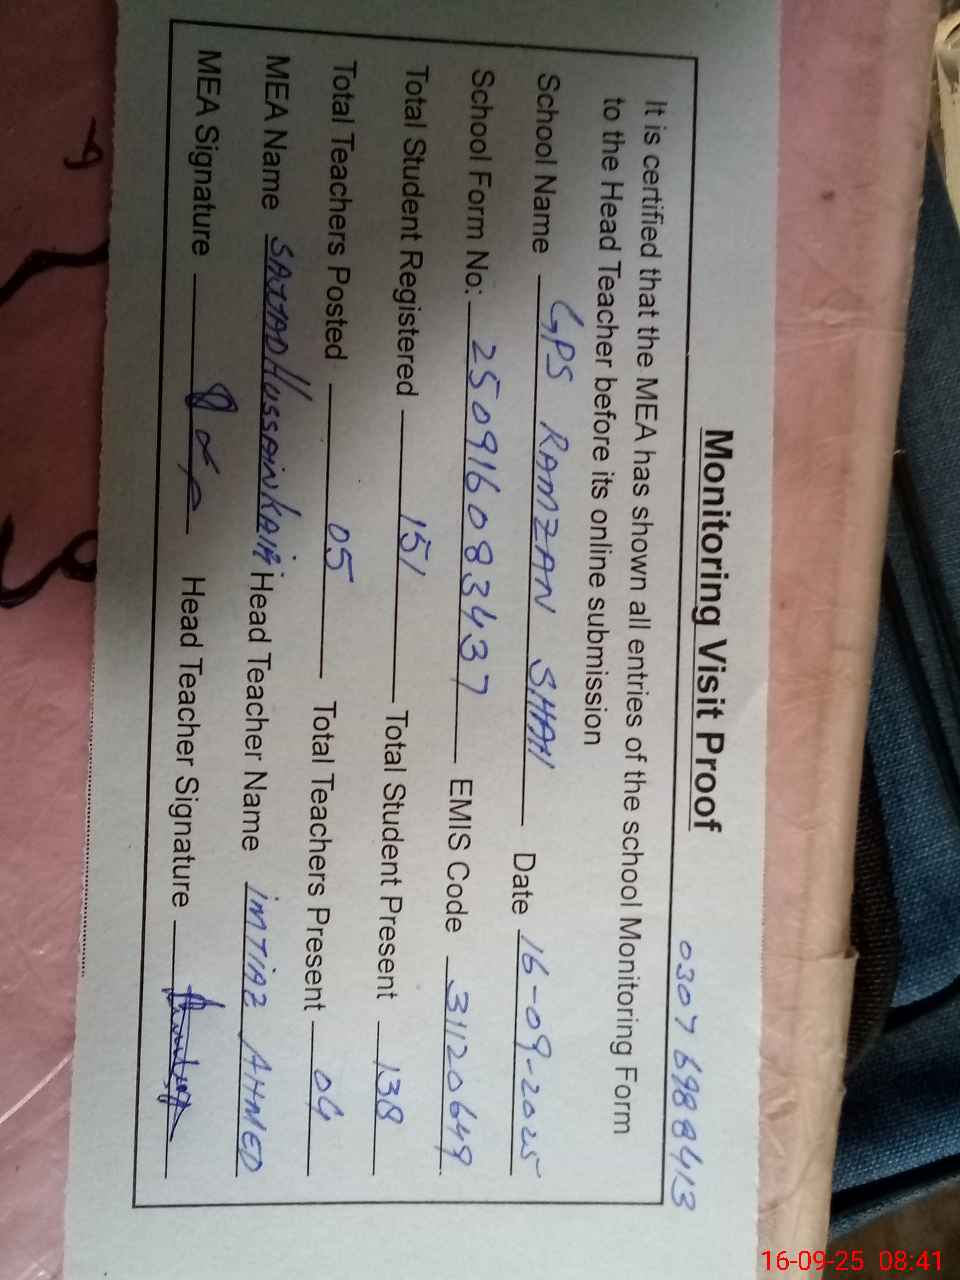 Monitoring Visit Proof
0307 6988413
It is certified that the MEA has shown all entries of the school Monitoring Form
to the Head Teacher before its online submission
School Name GPS RAMZAN SHAH Date 16-09-2025
School Form No: 250916083437 EMIS Code 31120649
Total Student Registered 151 Total Student Present 138
Total Teachers Posted 05 Total Teachers Present 04
MEA Name SAJJAD HUSSAIN Head Teacher Name IMTIAZ AHMED
MEA Signature Head Teacher Signature
16-09-25 08:41